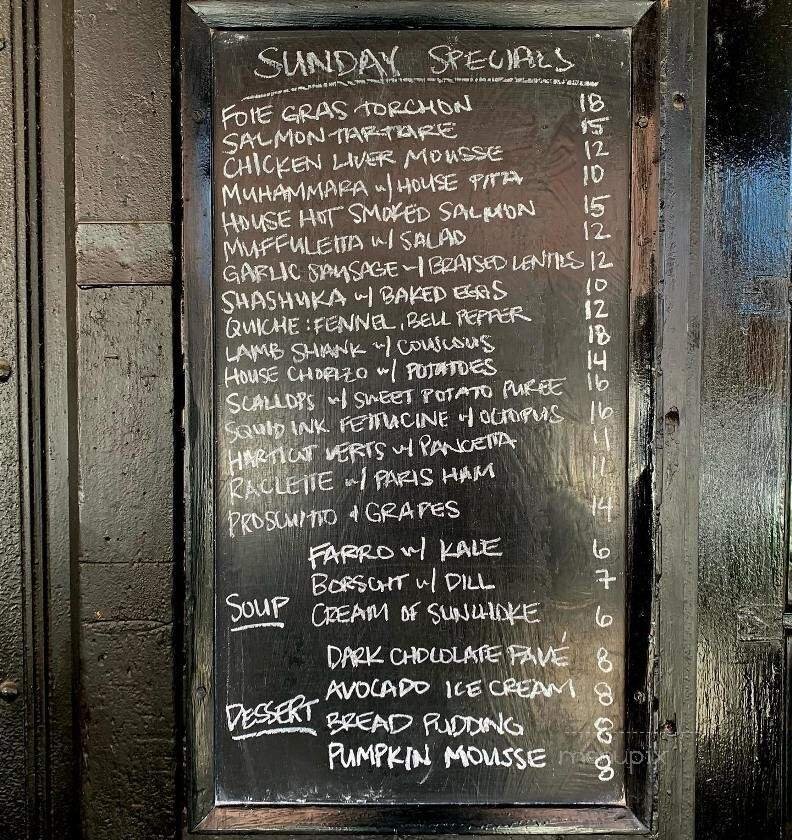 SUNDAY SPECIALS
FOIE GRAS TORCHON 18
SALMON TARTARE 15
CHICKEN LIVER MOUSSE 12
MUHAMMARA w/ HOUSE PITA 10
HOUSE HOT SMOKED SALMON 15
MUFFULETTA w/ SALAD 12
GARLIC SAUSAGE w/ BRAISED LENTILS 12
SHASHUKA w/ BAKED EGGS 10
QUICHE: FENNEL, BELL PEPPER 12
LAMB SHANK w/ COUSCOUS 18
HOUSE CHORIZO w/ POTATOES 14
SCALLOPS w/ SWEET POTATO PUREE 16
SQUID INK FETTUCINE w/ OCTOPUS 16
HARTICUT VERTS w/ PANCETTA 11
RACLETTE w/ PARIS HAM
PROSCUITTO & GRAPES 14
FARRO w/ KALE 6
BORSCHT w/ DILL 7
SOUP CREAM OF SUNCHOKE 6
DARK CHOCOLATE PAVÉ 8
AVOCADO ICE CREAM 8
DESSERT BREAD PUDDING 8
PUMPKIN MOUSSE 8
menupix